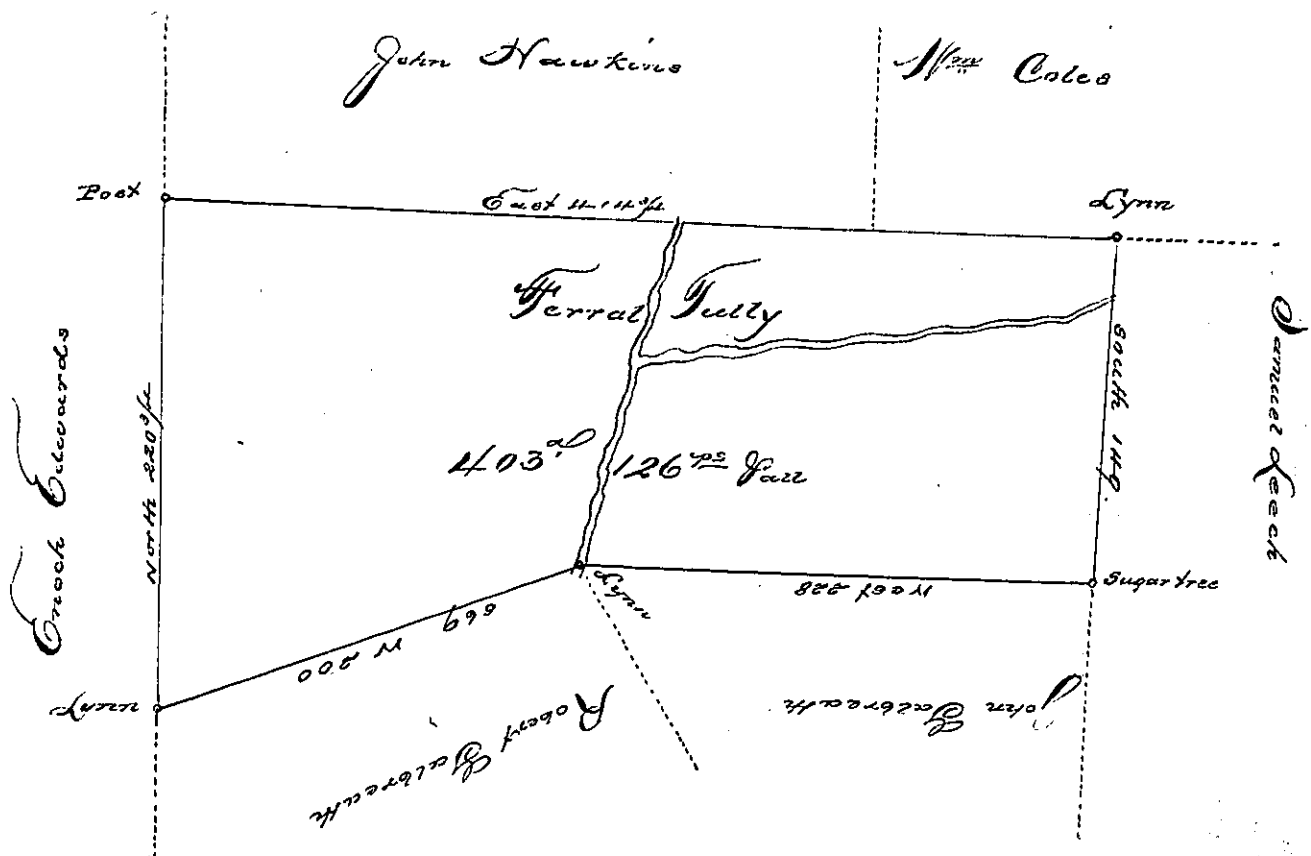 John Hawkins
Wm Coles
Post
East 414 p
Lynn
Ferral Tully
Enoch Edwards
North 220 p
South 149.
Samuel Leech
403 a. 126 ps
Lynn
Sugar tree
West 228
S69
W 200
Lynn
Robert Galbreath
John Galbreath